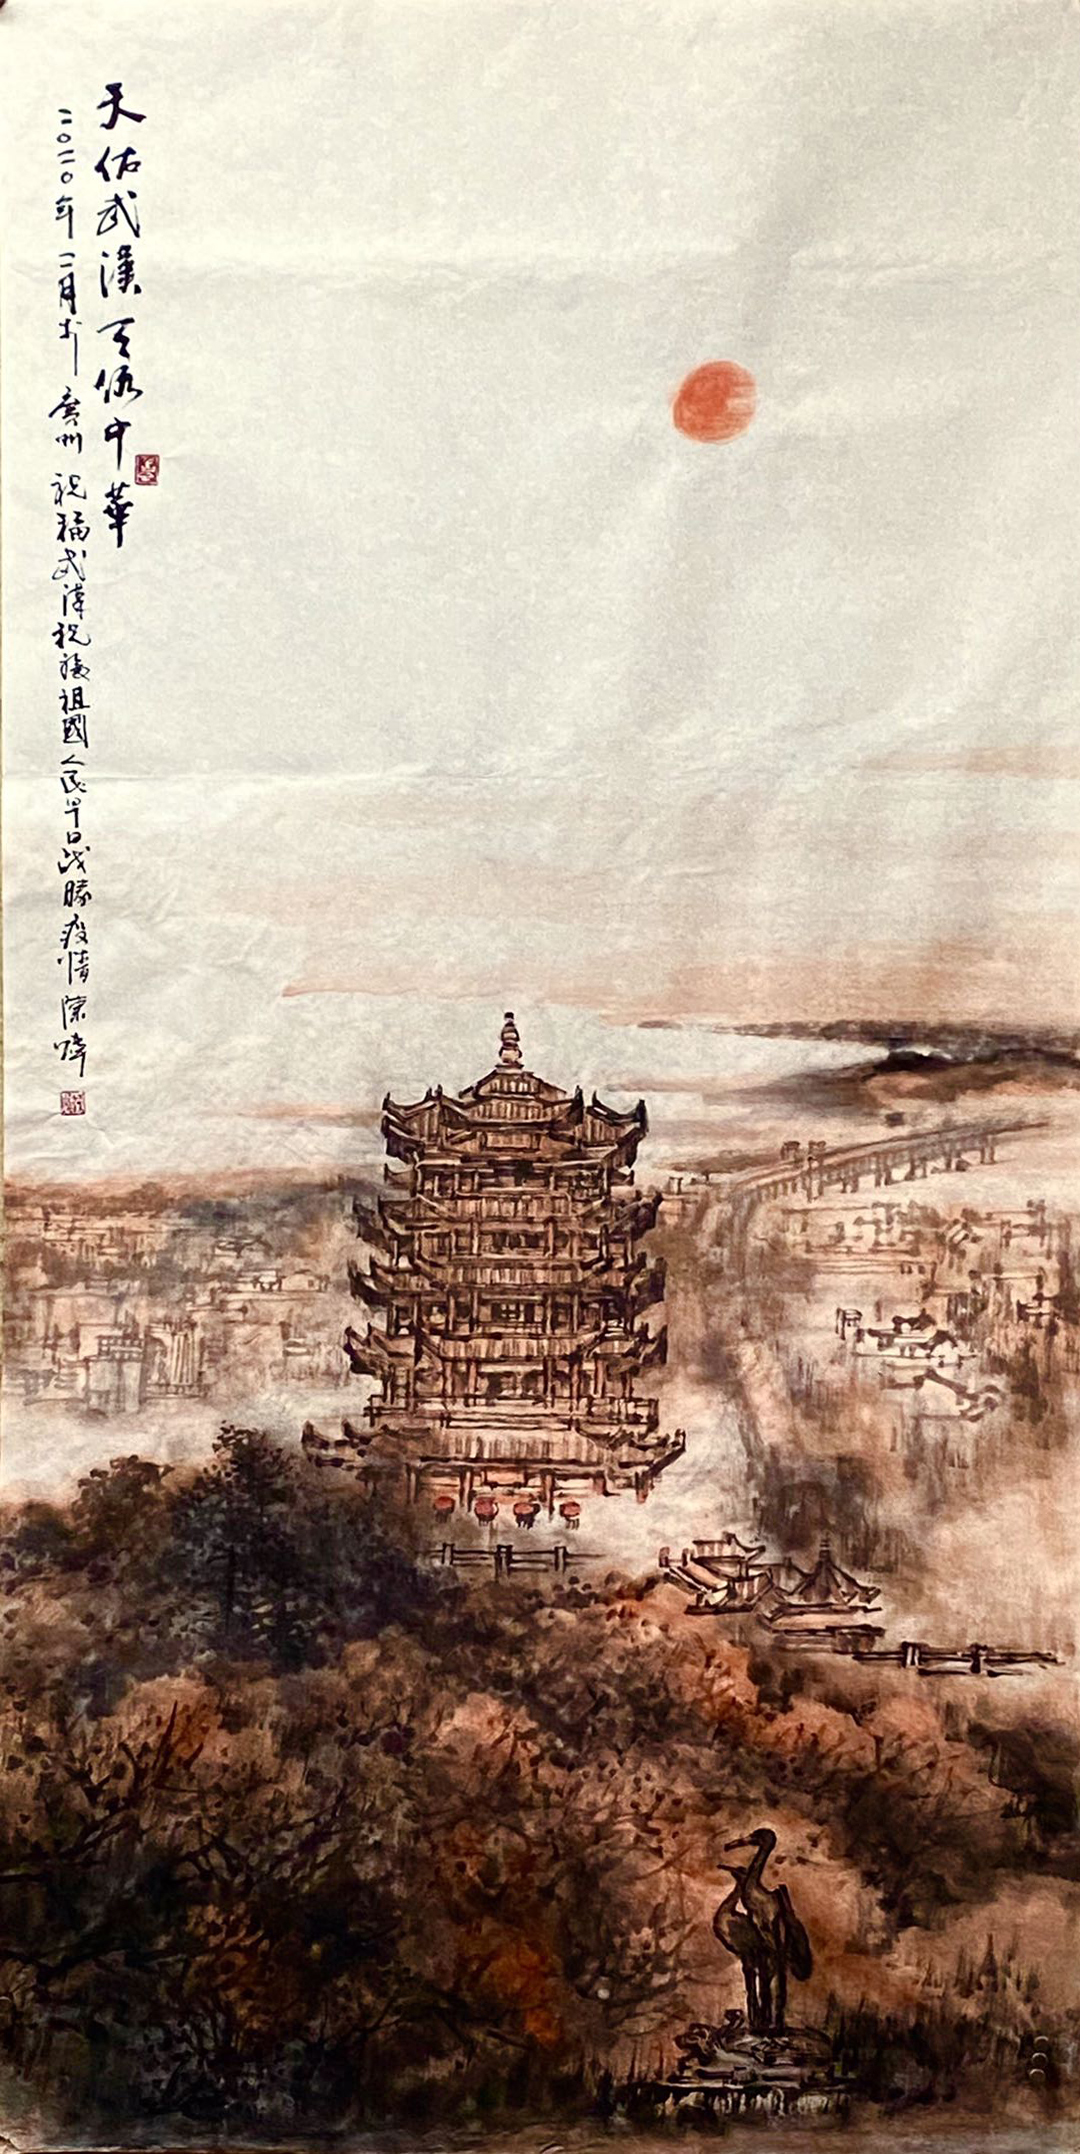 天佑武漢天佑中華
二〇二〇年二月於廣州祝福武漢祝福祖國人民早日战勝疫情陳